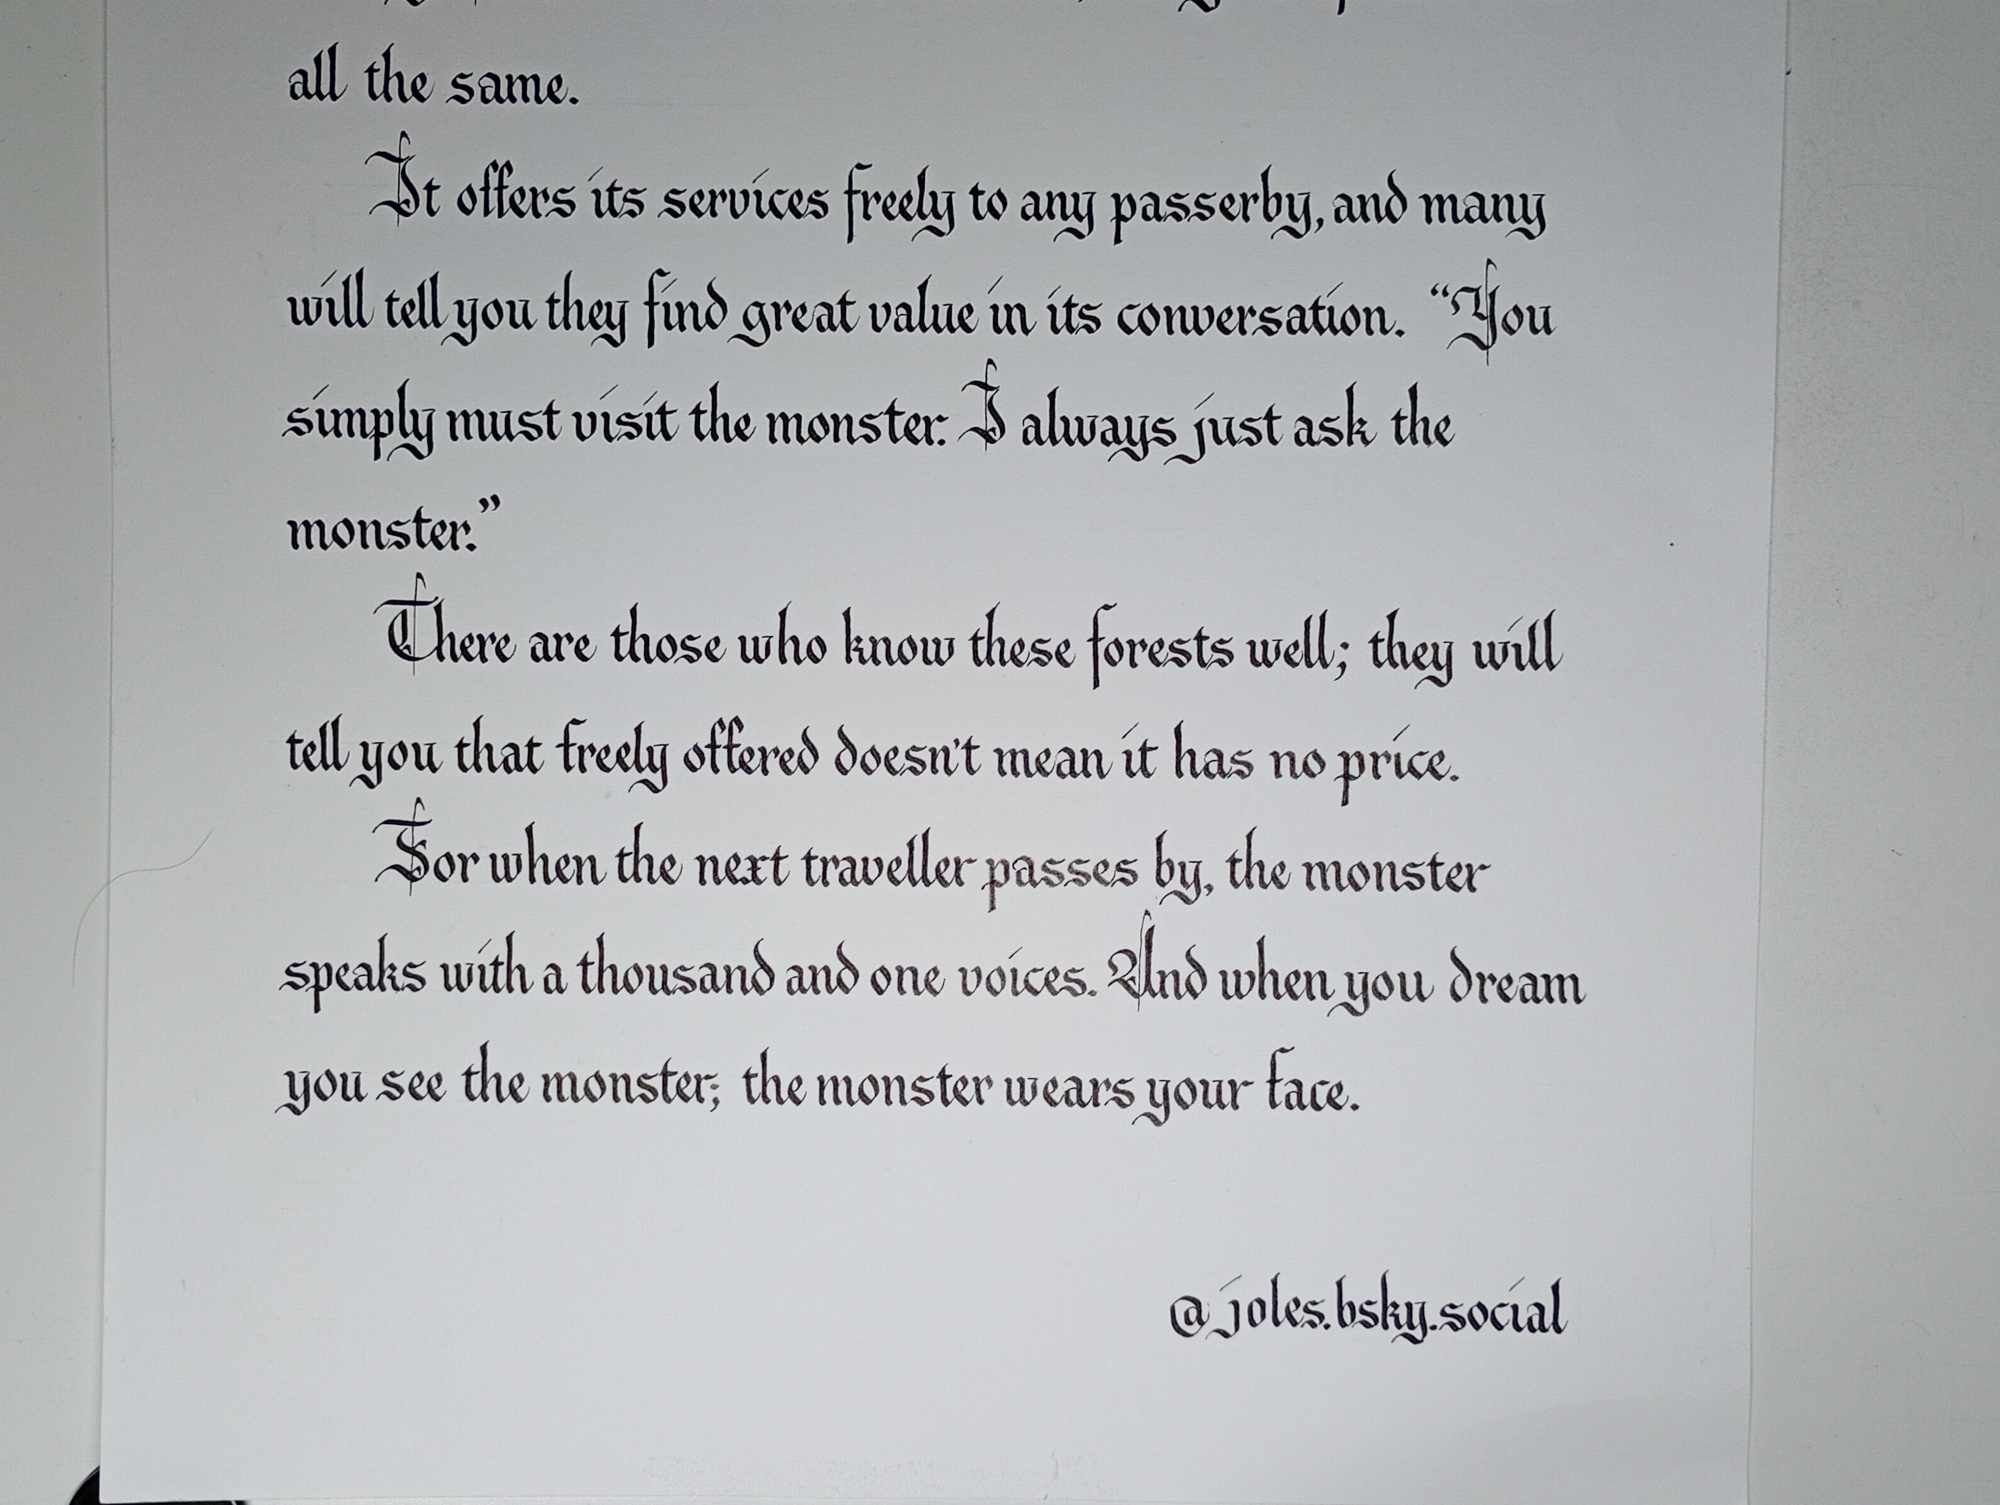 all the same.
It offers its services freely to any passerby, and many
will tell you they find great value in its conversation. “You
simply must visit the monster. I always just ask the
monster.”
There are those who know these forests well; they will
tell you that freely offered doesn't mean it has no price.
For when the next traveller passes by, the monster
speaks with a thousand and one voices. And when you dream
you see the monster; the monster wears your face.
@joles.bsky.social